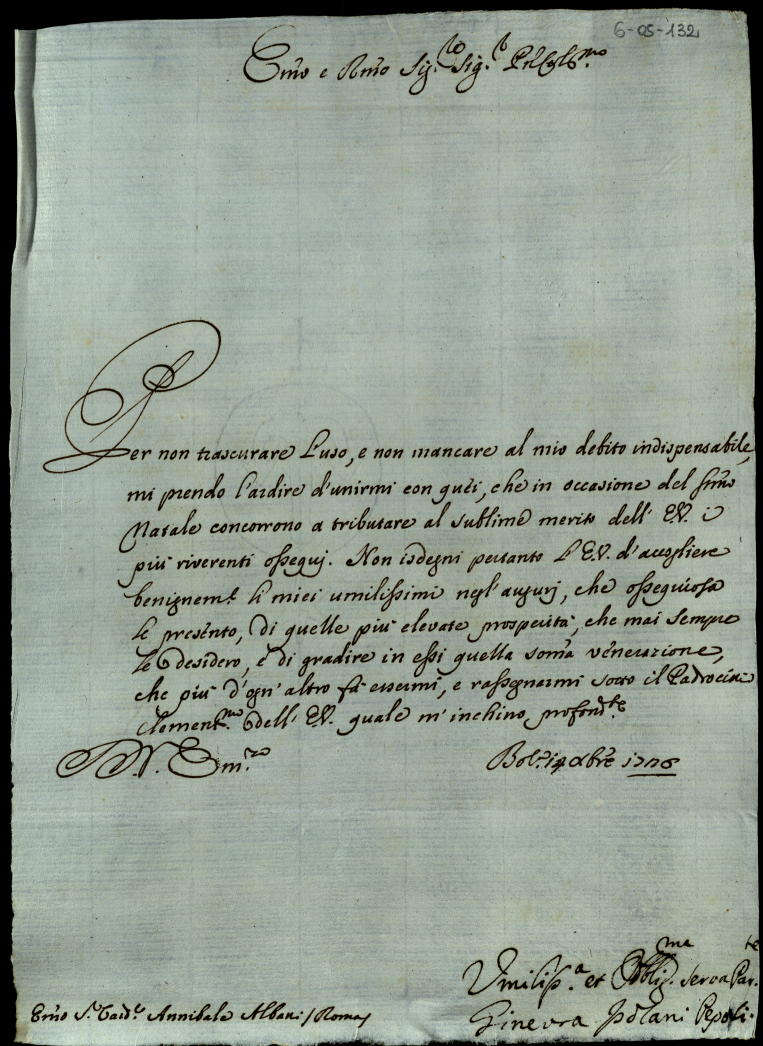 6-05-132
Emo e Rmo Sig.re Sig.r
Per non trascurare l'uso, e non mancare al mio debito indispensabile,
mi prendo l'ardire d'unirmi con quei, che in occasione del Smo
Natale concorrono a tributare al sublime merito dell' E.V. i
più riverenti ossequj. Non isdegni pertanto l'E.V. d'accogliere
benignem.te li miei umilissimi negl'augurj, che ossequiosa
le presento, di quelle più elevate prosperità, che mai sempre
le desidero, e di gradire in essi quella soma venerazione,
che più d'ogn' altro fà essermi, e rassegnarmi sotto il
Clement.mo dell' E.V. quale m'inchino profond.te
Bol.a
Umiliss.a et Obblig.ma Serva
Emo S.r Card.e Annibale Albani / Roma /
Ginevra Pepoli.